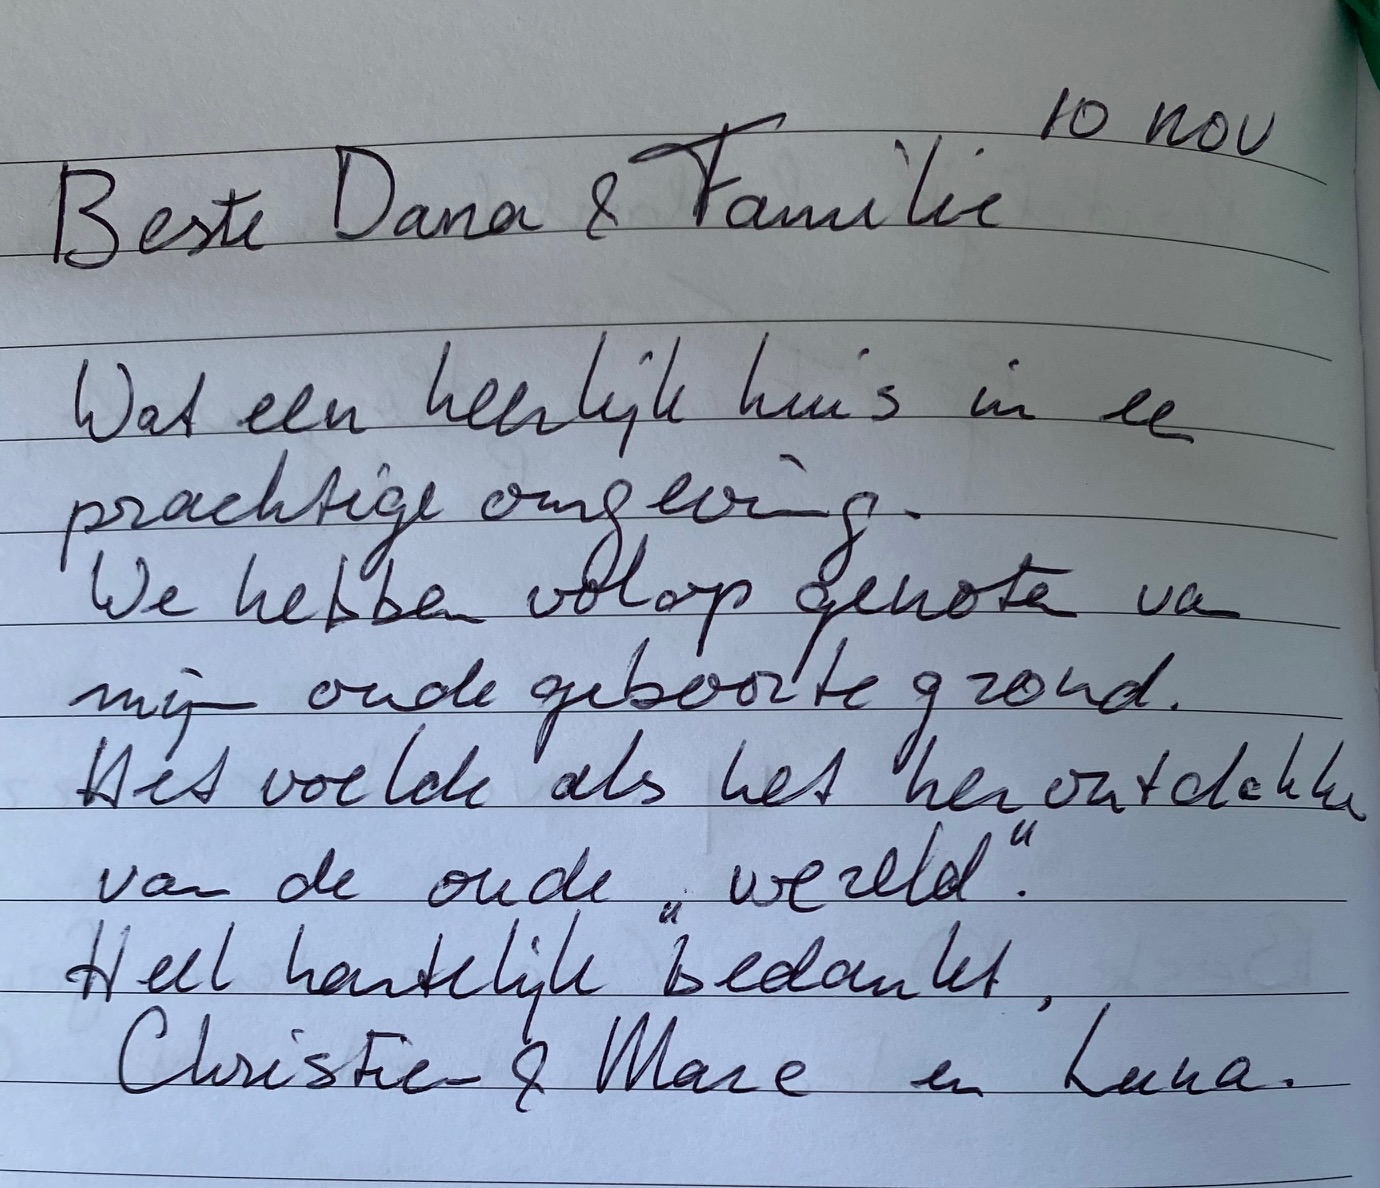 10 nov
Beste Dana & Familie
Wat een heerlijk huis in een
prachtige omgeving.
We hebben volop genoten van
mijn oude geboorte grond.
Het voelde als het herontdekken
van de oude „wereld“.
Heel hartelijk bedankt,
Christien & Marc en Luna.